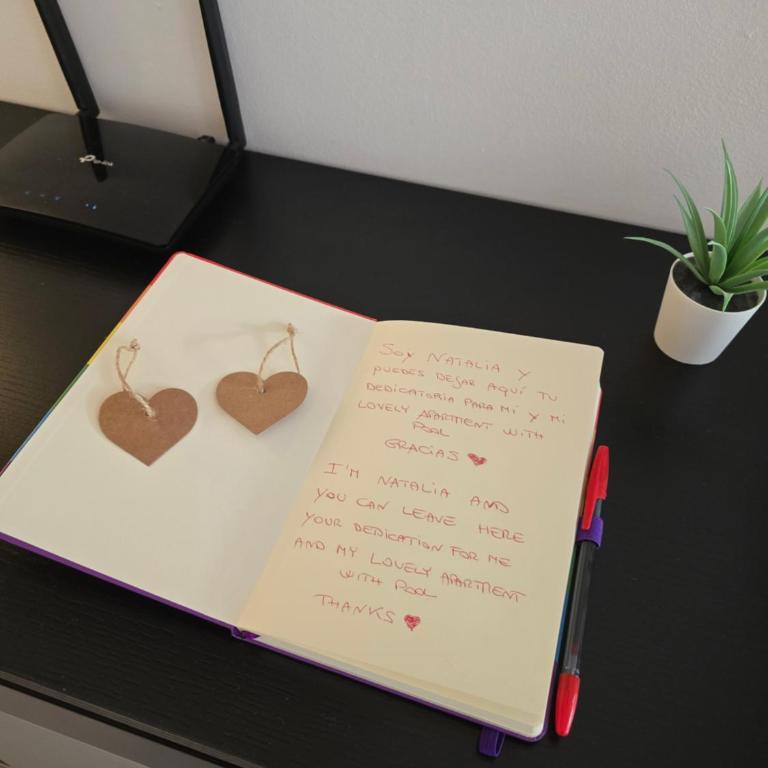 tp-link
SOY NATALIA Y
PUEDES DEJAR AQUÍ TU
DEDICATORIA PARA MI Y MI
LOVELY APARTMENT WITH
POOL
GRACIAS
I'M NATALIA AND
YOU CAN LEAVE HERE
YOUR DEDICATION FOR ME
AND MY LOVELY APARTMENT
WITH POOL
THANKS